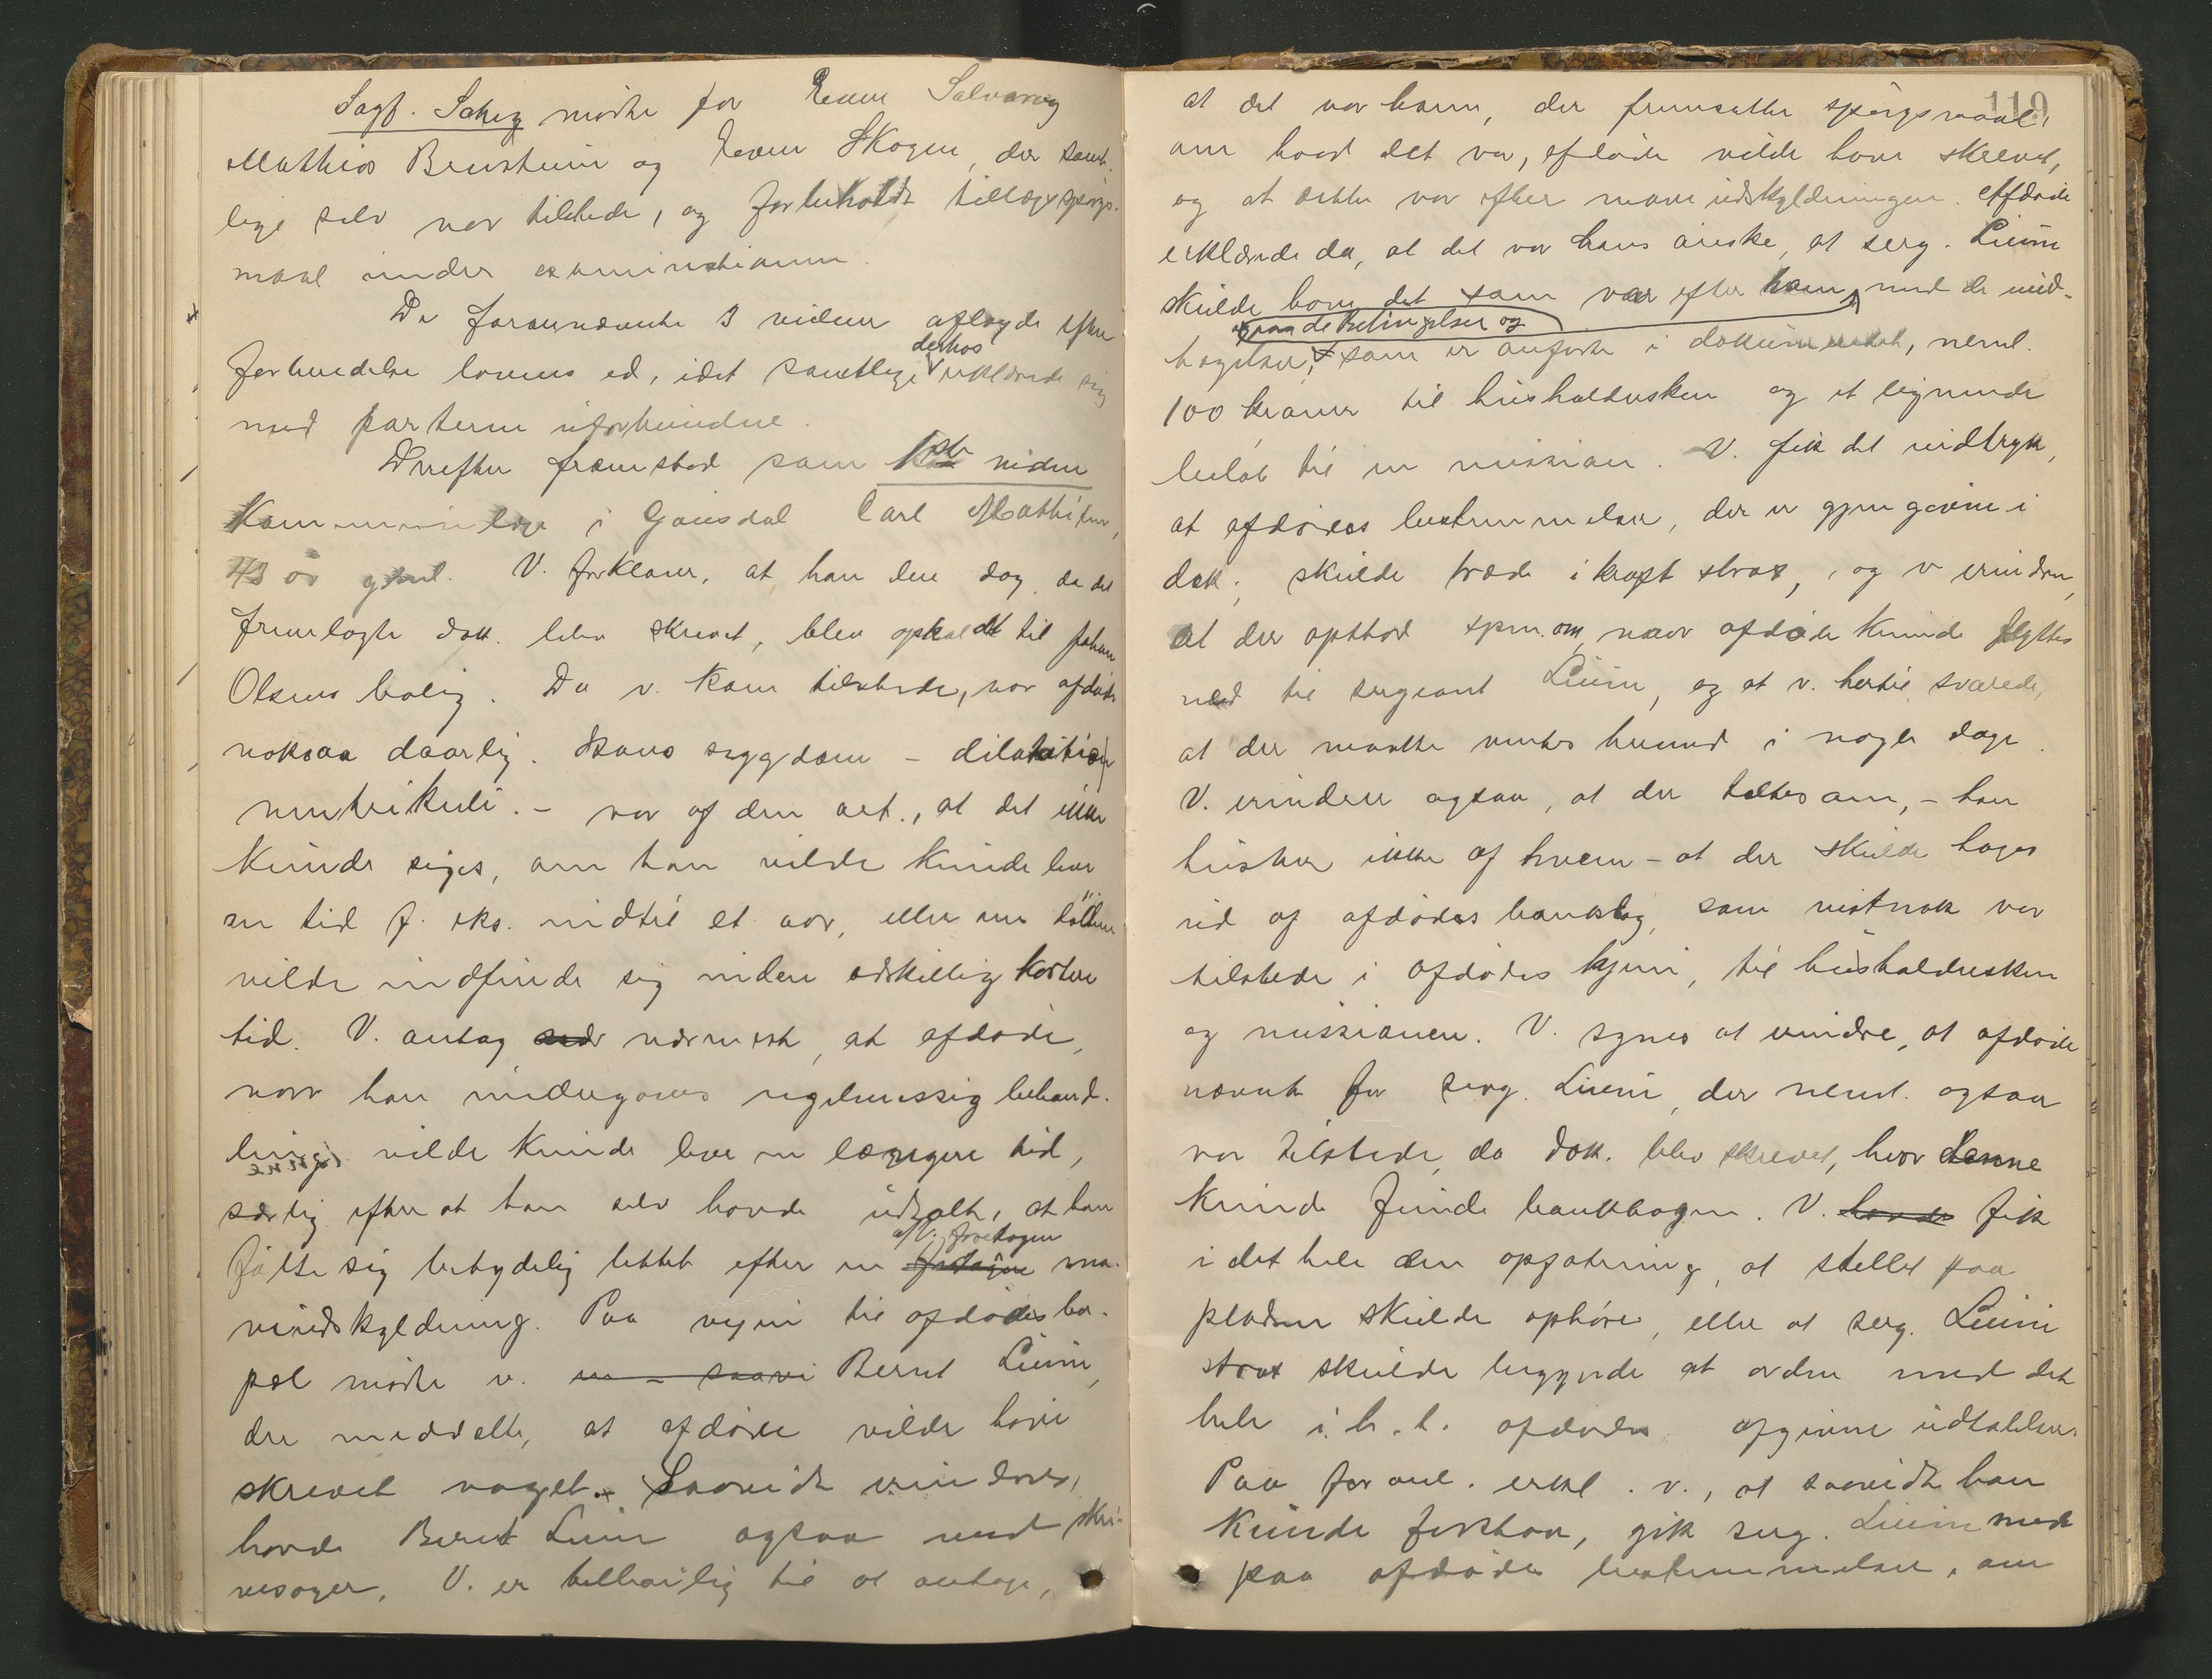 Sagf. Scheig mødte for Even Salvarog
Mathias Brusheim og Iver Skogen, der samt-
lige selv var tilstede, og forbeholdt tillægsspørgs-
maal under examinationen.
De forannævnte 3 vidner aflagde efter
forberedelse lovens ed, idet samtlige derhos erklærede sig
med parterne uforbundne.
Derefter fremstod som 1ste vidne
Kommunelæge i Gausdal Carl Mathisen,
43 aar gml. V. forklarer, at han den dag, da det
fremlagte dok. blev skrevet, blev opkaldt til Johan
Olsens bolig. Da v. kom tilstede, var afdøde
noksaa daarlig. Hans sygdom – dilatatio
ventrikuli. – var af den art, at det ikke
kunde siges, om han vilde kunde leve
en tid f. eks. indtil et aar, eller om døden
vilde indfinde sig inden adskillig kortere
tid. V. antog nærmest, at afdøde,
naar han undergaves regelmæssig behand-
ling vilde kunde leve en længere tid,
særlig efter at han selv havde udtalt, at han
følte sig betydelig lettet efter en af V. foretagen ma-
veudskyldning. Paa veien til afdødes bo-
pæl mødte v. Bernt Liem,
der meddelte, at afdøde vilde have
skrevet noget. Saavidt erindres,
havde Bernt Liem ogsaa med skri-
vesager. V. er tilbøielig til at antage,
119
at det var ham, der fremsatte spørgsmaal
om hvad det var, afdøde vilde have skrevet,
og at dette var efter maveudskyldningen. Afdøde
erklærede da, at det var hans ønske, at serg. Liem
skulde have det som var efter ham, med de und-
paa de betingelser og
tagelser, som er anførte i dokumentet, neml.
100 kroner til husholdersken og et lignende
beløb til en mission. V. fik det indtryk,
at afdødes bestemmelser, der er gjengivne i
dok. skulde træde i kraft strax, og v erindrer,
at der opstod spm. om, naar afdøde kunde flyttes
ned til sergeant Liem, og at v. hertil svarede,
at der maatte ventes hermed i nogle dage.
V. erindrer ogsaa, at der taltes om, – han
husker ikke af hvem – at der skulde tages
ud af afdødes bankbog, som vistnok var
tilstede i afdødes hjem, til husholdersken
og missionen. V. synes at erindre, at afdøde
nævnte for serg. Liem, der neml. ogsaa
var tilstede, da dok. blev skrevet, hvor denne
kunde finde bankbogen. V. havde fik
i det hele den opfatning, at stellet paa
pladsen skulde ophøre, eller at serg. Liem
strax skulde begynde at ordne med det
hele i. h. t. afdødes afgivne udtalelser.
Paa foranl. erkl. v., at saavidt han
kunde forstaa, gik serg. Liem med
paa afdødes bestemmelser, om